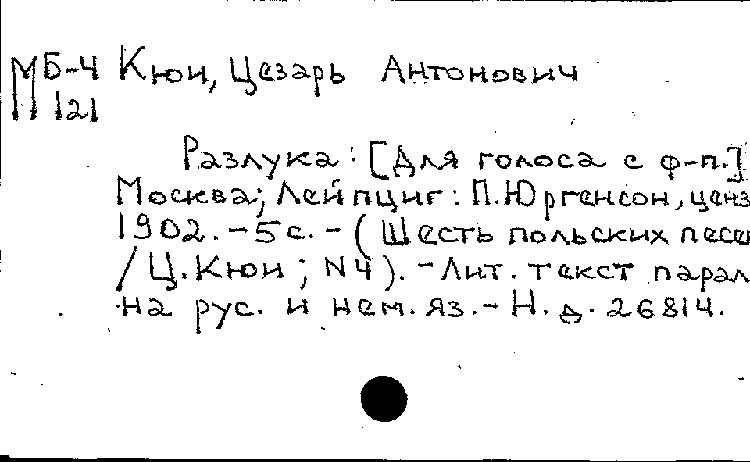 МБ-4 Кюи, Цезарь Антонович
121
Разлука: [Для голоса с ф-п.]
Москва; Лейпциг: П. Юргенсон, ценз
1902. - 5 с. - (Шесть польских песе
/ Ц. Кюи ; N4). - Лит. текст парал
на рус. и нем. яз. - Н. д. 26814.